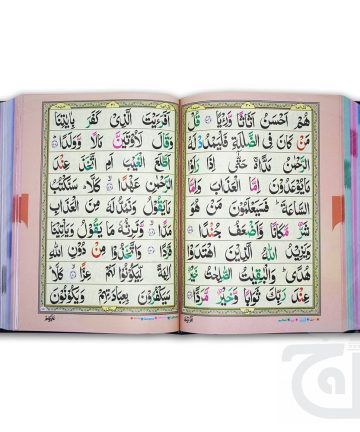 هُمْ اَحْسَنُ اَثَاثًا وَّرِءْيًا قُلْ
مَنْ كَانَ فِى الضَّلٰلَةِ فَلْيَمْدُدْ لَهُ
الرَّحْمٰنُ مَدًّا حَتّٰٓى اِذَا رَاَوْا
مَا يُوْعَدُوْنَ اِمَّا الْعَذَابَ وَاِمَّا
السَّاعَةَ فَسَيَعْلَمُوْنَ مَنْ هُوَ
شَرٌّ مَّكَانًا وَّاَضْعَفُ جُنْدًا
وَيَزِيْدُ اللّٰهُ الَّذِيْنَ اهْتَدَوْا
هُدًى وَالْبٰقِيٰتُ الصّٰلِحٰتُ خَيْرٌ
عِنْدَ رَبِّكَ ثَوَابًا وَّخَيْرٌ مَّرَدًّا
اَفَرَءَيْتَ الَّذِىْ كَفَرَ بِاٰيٰتِنَا
وَقَالَ لَاُوْتَيَنَّ مَالًا وَّوَلَدًا
اَطَّلَعَ الْغَيْبَ اَمِ اتَّخَذَ عِنْدَ
الرَّحْمٰنِ عَهْدًا كَلَّا سَنَكْتُبُ
مَا يَقُوْلُ وَنَمُدُّ لَهٗ مِنَ الْعَذَابِ
مَدًّا وَّنَرِثُهٗ مَا يَقُوْلُ وَيَاْتِيْنَا
فَرْدًا وَاتَّخَذُوْا مِنْ دُوْنِ اللّٰهِ
اٰلِهَةً لِّيَكُوْنُوْا لَهُمْ عِزًّا كَلَّا
سَيَكْفُرُوْنَ بِعِبَادَتِهِمْ وَيَكُوْنُوْنَ